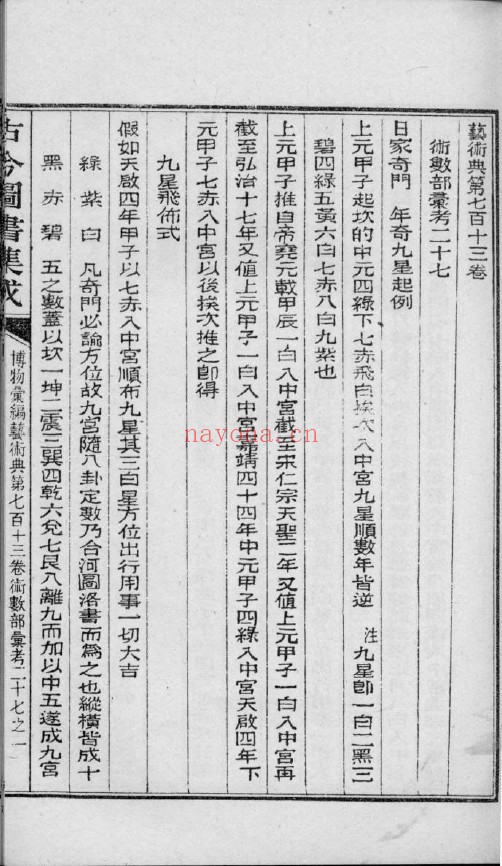 藝術典第七百十三卷
術數部彙考二十七
日家奇門　年奇九星起例
上元甲子起坎的中元四綠下七赤飛白挨次入中宮九星順數年皆逆　注　九星卽一白二黑三
碧四綠五黃六白七赤八白九紫也
上元甲子推自帝堯元載甲辰一白入中宮截至宋仁宗天聖二年又値上元甲子一白入中宮再
截至弘治十七年又値上元甲子一白入中宮嘉靖四十四年中元甲子四綠入中宮天啟四年下
元甲子七赤入中宮以後挨次推之卽得
九星飛佈式
假如天啟四年甲子以七赤入中宮順布九星其三白星方位出行用事一切大吉
綠　紫　白　凡奇門必論方位故九宮隨八卦定數乃合河圖洛書而爲之也縱橫皆成十
黑　赤　碧　五之數蓋以坎一坤二震三巽四乾六兌七艮八離九而加以中五遂成九宮
古今圖書集成
博物彙編藝術典第七百十三卷術數部彙考二十七之一
nayona.cn